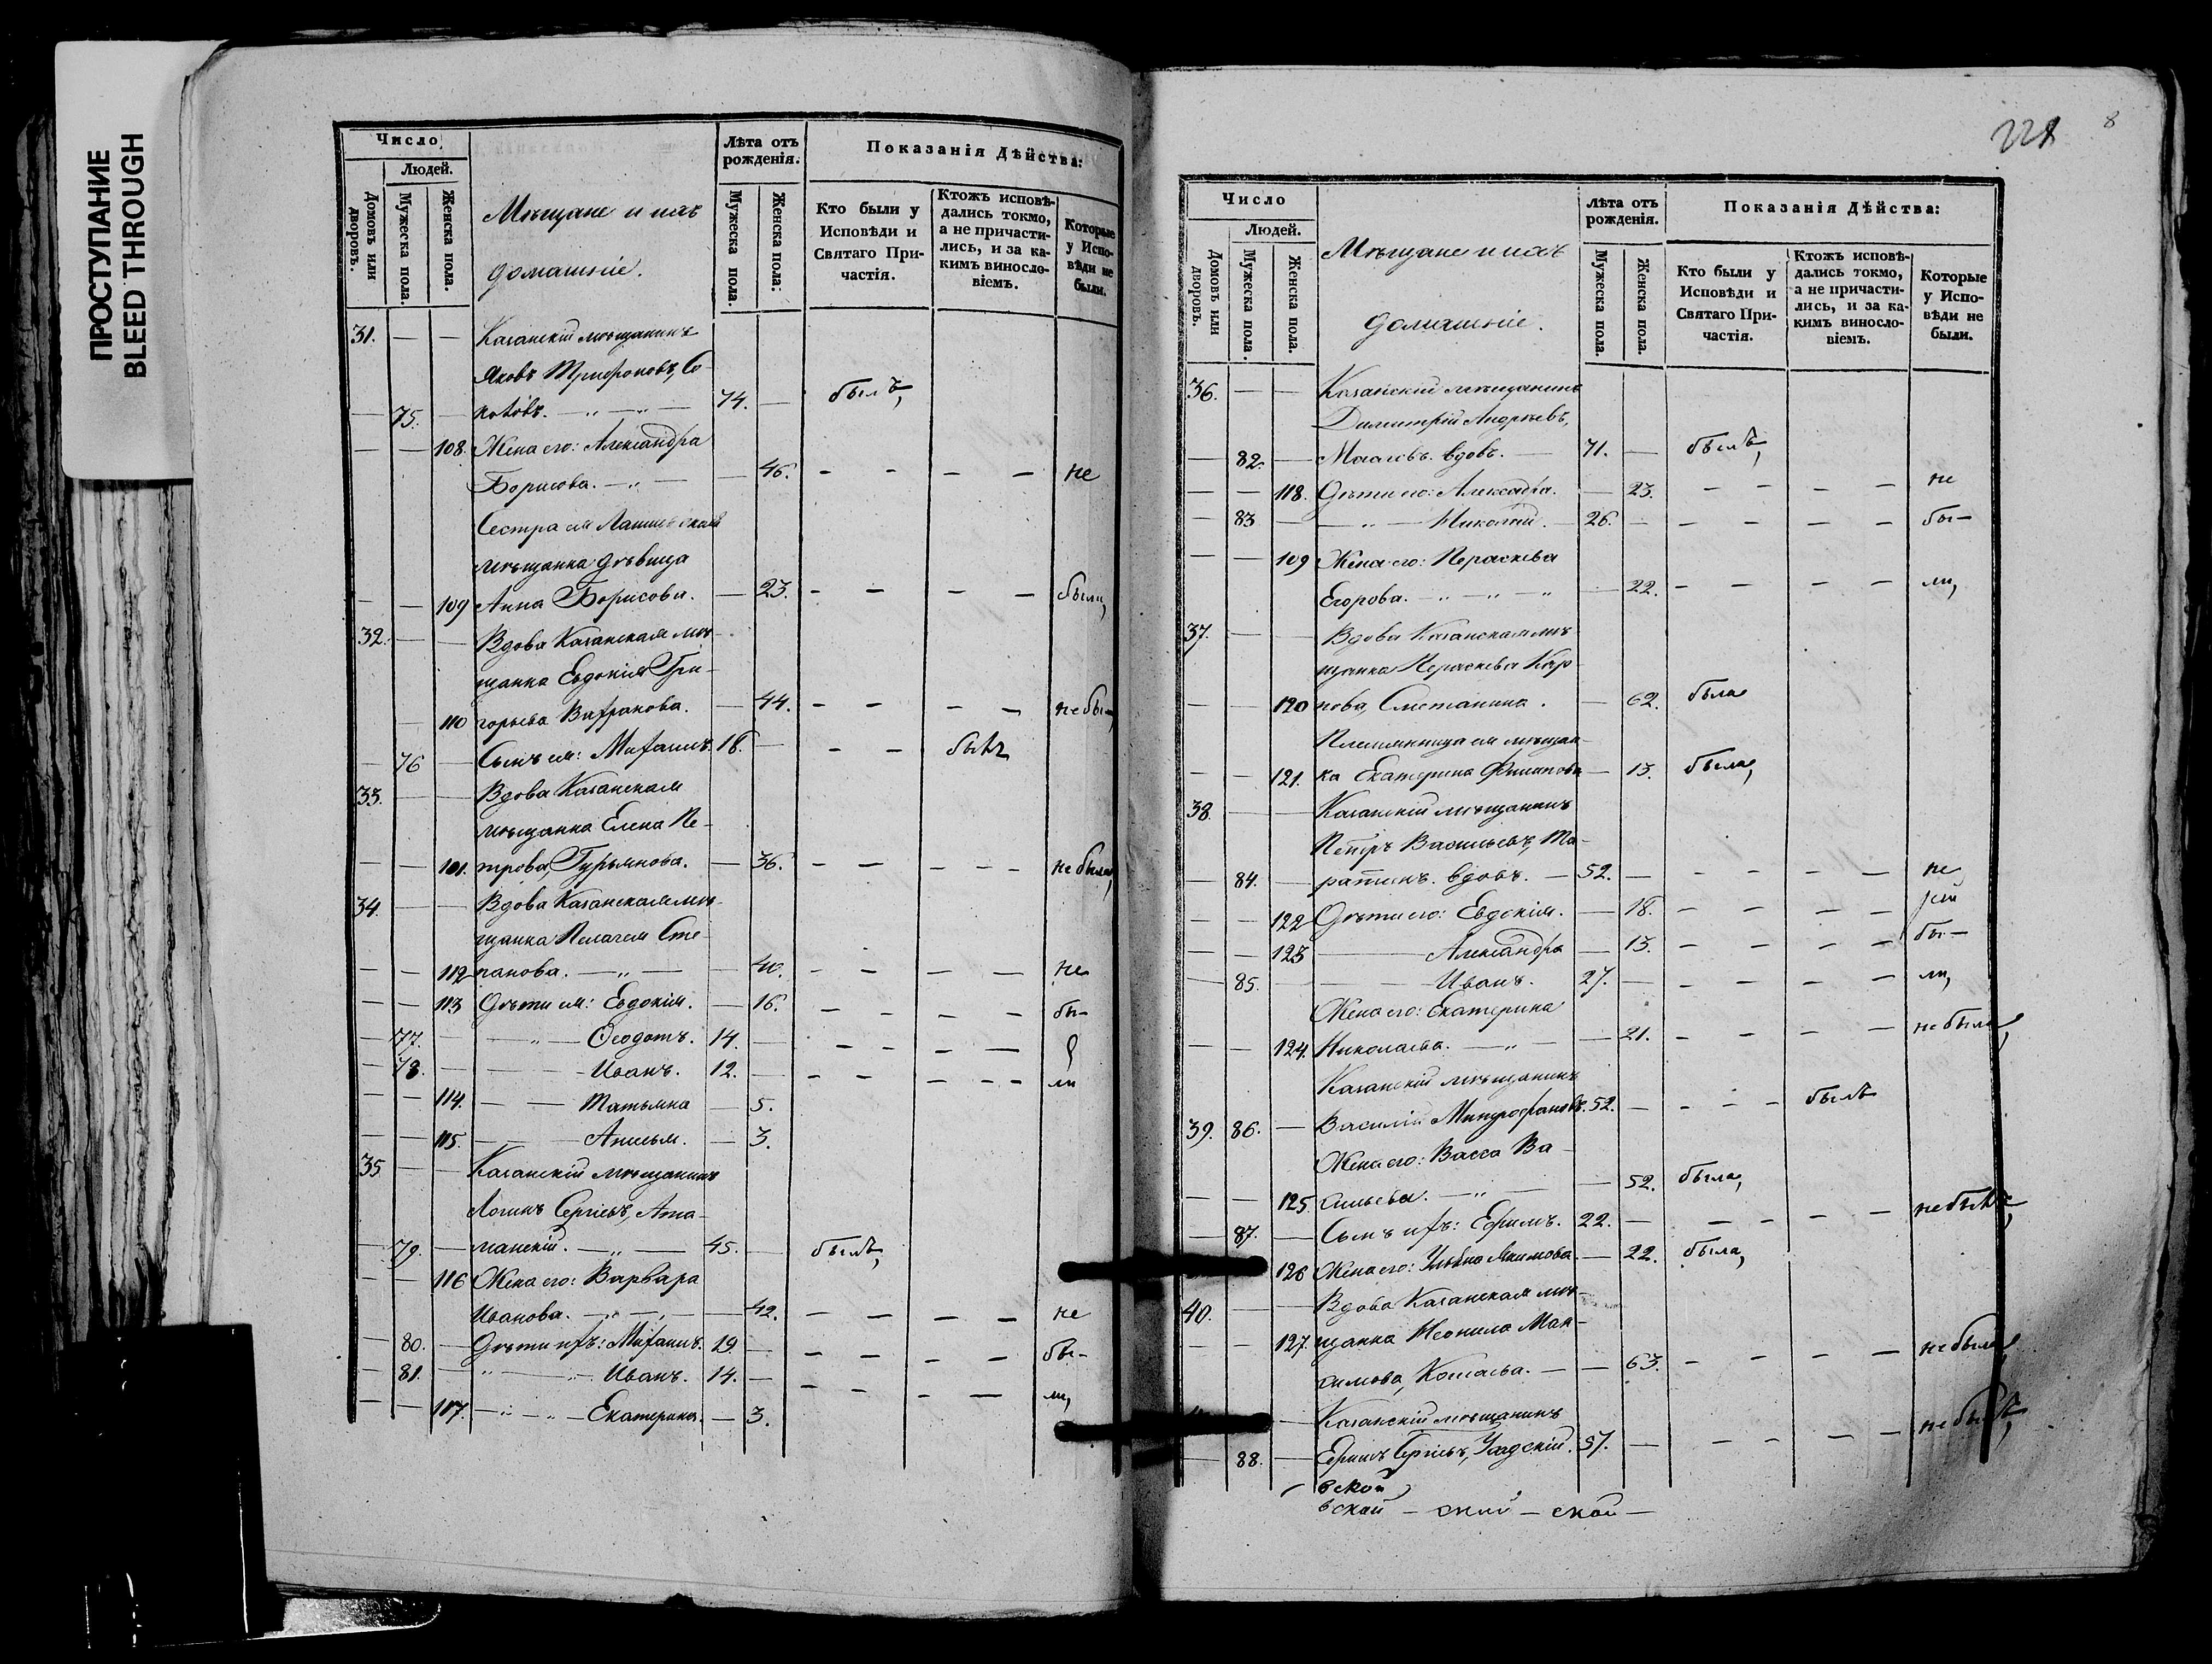 ПРОСТУПАНИЕ
BLEED THROUGH
Число
Людей.
Домовъ или дворовъ.
Мужеска пола.
Женска пола.
Мѣщане и ихъ
домашніе.
Лѣта отъ рожденія.
Мужеска пола.
Женска пола.
Показанія Дѣйства:
Кто были у Исповѣди и Святаго Причастія.
Ктожъ исповѣдались токмо, а не причастились, и за какимъ винословіемъ.
Которые у Исповѣди не были.
31. — — Казанскій мѣщанинъ
Яковъ Трифоновъ, Со-
— 75. — 74. — былъ,
— — 108. Жена его: Александра
Борисова. — „ — — 46. - - — — не
Сестра ея
мѣщанка дѣвица
— — 109 Анна Борисова. — 23. - - — — были,
32. — — Вдова Казанская мѣ-
щанка Евдокія Гри-
— 110 горьева — 44. - - — — не бы-
— 76 — Сынъ ея: Михаилъ. 18. — - - былъ
33. — — Вдова Казанская
мѣщанка Елена Пе-
— — 101. трова, Гурьянова. — 36. - — - - - не была,
34. — — Вдова Казанская мѣ-
щанка Пелагея Сте-
— — 112 панова. — „ — — 40. - - — — не
— — 113 Дѣти ея: Евдокія. — 16. - - - - бы-
— 77. — „ — Ѳеодотъ. 14. — - - - —
— 78. — — — Иванъ. 12. — - - - - - ли
— — 114. — — Татьяна — 5.
— — 115. — — — 3.
35 — — Казанскій мѣщанинъ
Логинъ Сергѣевъ, Ата-
— 79. — манскій. — „ — 45. — былъ,
— — 116 Жена его: Варвара
Иванова. — „ — „ — 42. - — — — не
— 80. — Дѣти ихъ: Михаилъ. 19. — - - - — бы-
— 81. — „ — „ — Иванъ. 14. — - - - — ли,
— — 117. — „ — „ — Екатерина. — 3.
228 8
Число
Людей.
Домовъ или дворовъ.
Мужеска пола.
Женска пола.
Мѣщане и ихъ
домашніе.
Лѣта отъ рожденія.
Мужеска пола.
Женска пола.
Показанія Дѣйства:
Кто были у Исповѣди и Святаго Причастія.
Ктожъ исповѣдались токмо, а не причастились, и за какимъ винословіемъ.
Которые у Исповѣди не были.
36. — — Казанскій мѣщанинъ
Димитрій Андреевъ,
— 82. — вдовъ. — 71. — былъ,
— — 118. Дѣти его: Алексадра. — 23. - - - — не
— 83 — — „ — Николай. — 26. — - — — — бы-
— — 109 Жена его: Параскева
Егорова. — „ — „ — „ — 22. - — — — ли,
37. — — Вдова Казанская мѣ-
щанка Параскева Кар-
— — 120 пова, Сметанина. — 62. была
Племянница ея мѣщан-
— — 121. ка Екатерина Филипова — 13. была,
38. — — Казанскій мѣщанинъ
Петръ Васильевъ, Та-
— 84. — вдовъ. — 52. — - — - — не
— — 122 Дѣти его: Евдокія. — 18. - — — —
— — 123 — Александра — 13. - — — — бы-
— 85. — — — Иванъ. 27. — - — - — ли,
Жена его: Екатерина
— — 124. Николаева. — „ — — 21. - - — — не была,
Казанскій мѣщанинъ
39. 86. — Василій Митрофановъ. 52. — - - - былъ
Жена его: Васса Ва-
— — 125. сильева. — „ — — 52. была,
— 87. — Сынъ ихъ: Ефимъ. 22. — - - - — не былъ,
126 Жена его: Ульяна Якимова. — 22. была,
40. — — Вдова Казанская мѣ-
— — 127. щанка Неонила Мак-
симова, — — 63. - - — — не была,
— Казанскій мѣщанинъ
— 88. — Ефимъ Сергѣевъ, 57. — - — - — не былъ,
вской
вской — ский — ской —